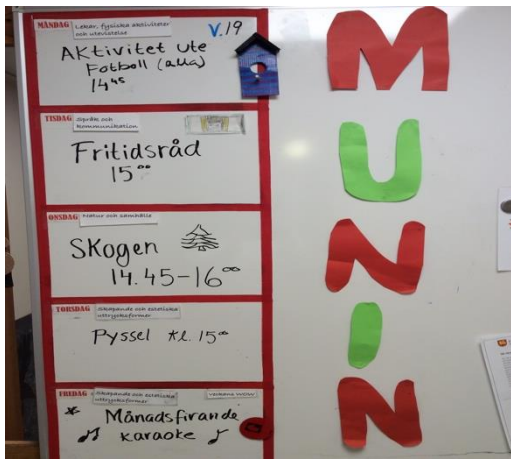 MÅNDAG Lekar, fysiska aktiviteter
och utevistelse
V.19
AKtivitet ute
Fotboll (alla)
14 45
TISDAG Språk och
kommunikation
Fritidsråd
15 00
ONSDAG Natur och samhälle
SKogen
14.45-16 00
TORSDAG Skapande och estetiska
uttrycksformer
Pyssel Kl. 15 00
FREDAG Skapande och estetiska
uttrycksformer
Veckans WOW
Månadsfirande
Karaoke
MUNIN